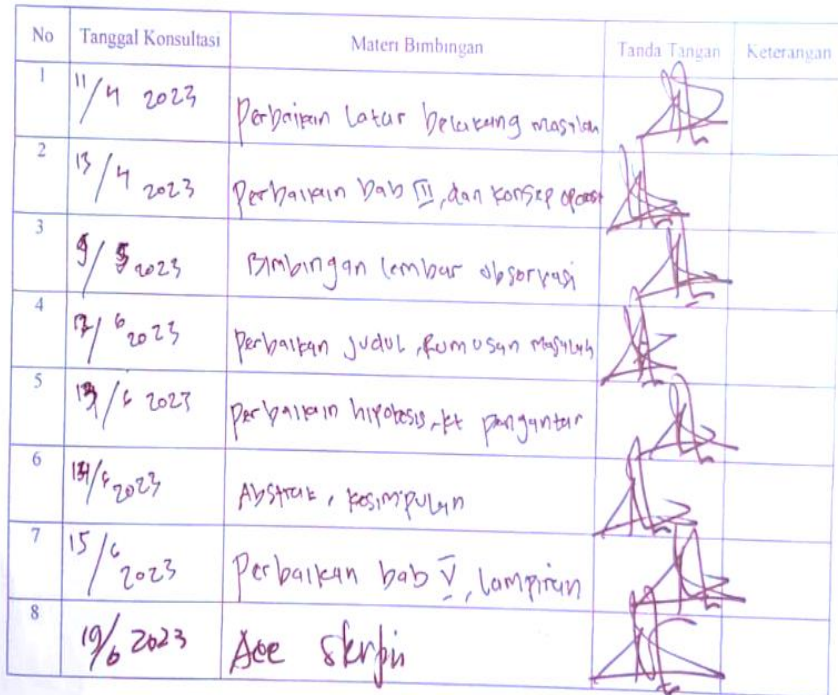 No Tanggal Konsultasi Materi Bimbingan Tanda Tangan Keterangan
1 11/4 2023 Perbaikan Latar belakang masalah
2 13/4 2023 Perbaikan bab III, dan konsep
3 2023 Bimbingan lembar observasi
4 /6 2023 Perbaikan Judul, Rumusan Masalah
5 /6 2023 Perbaikan hipotesis, kt pengantar
6 /6 2023 Abstrak, kesimpulan
7 15/6 2023 Perbaikan bab V, lampiran
8 19/6 2023 Acc skripsi